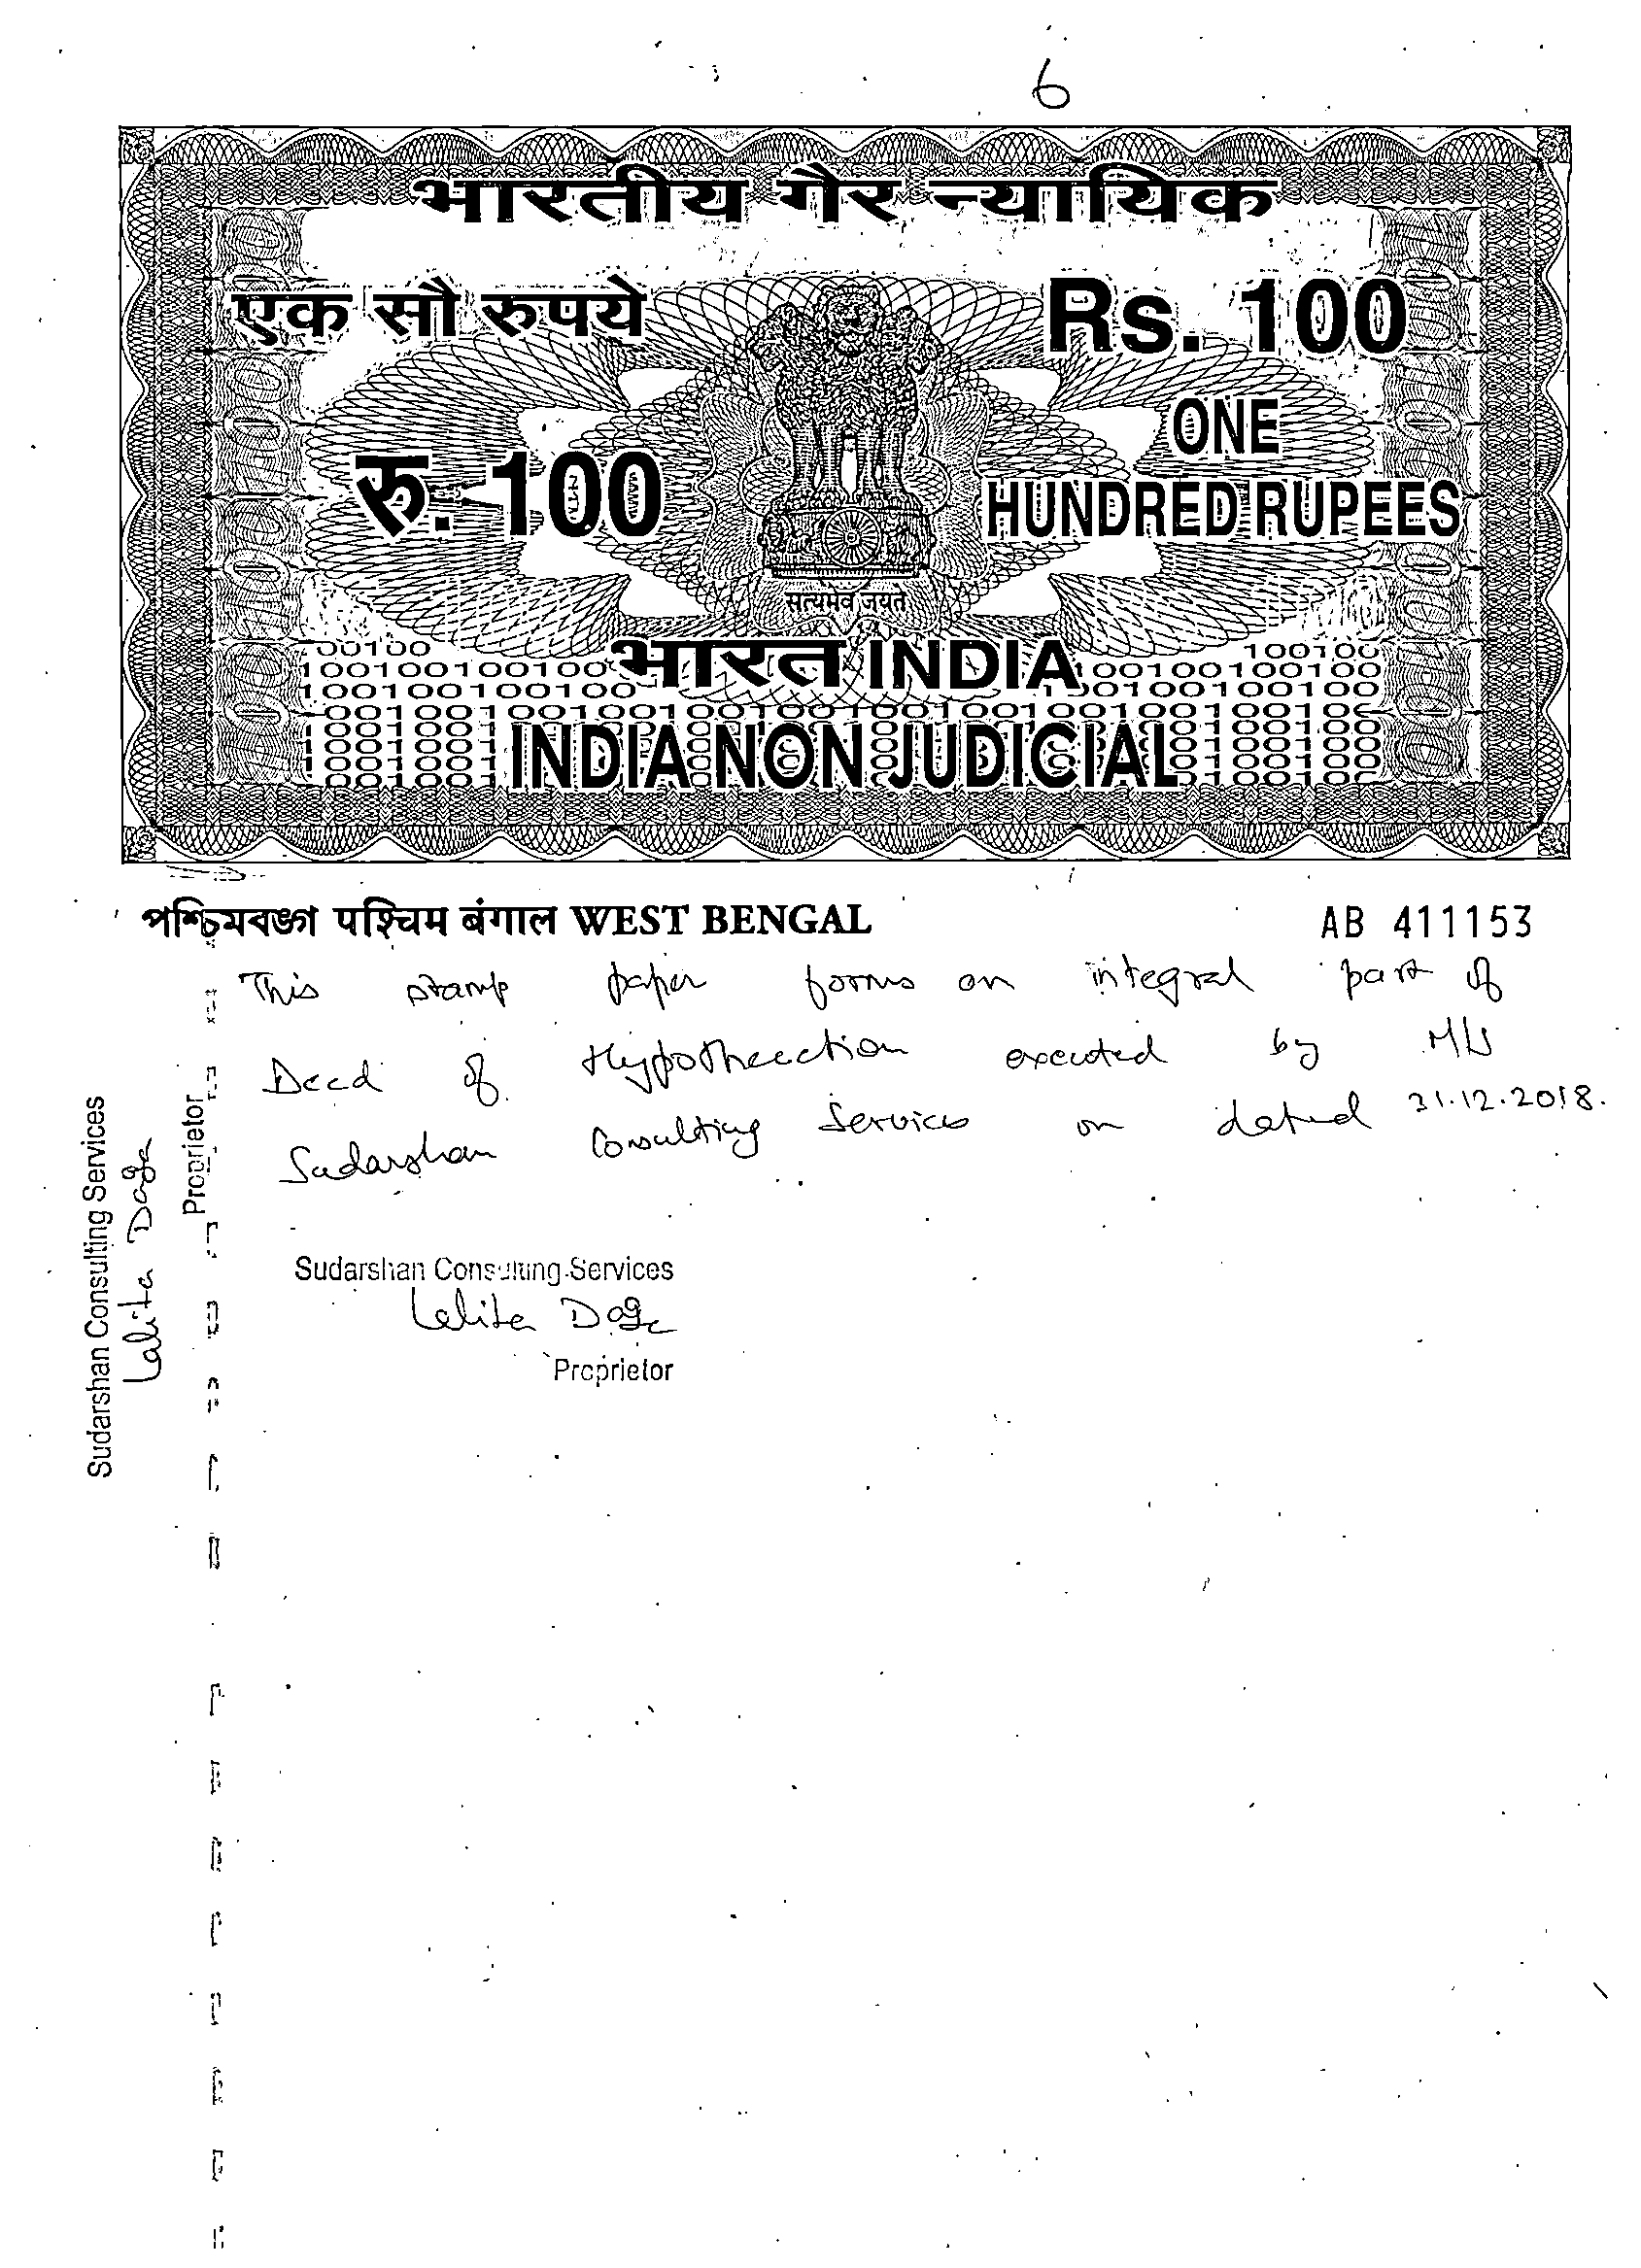 6
भारतीय गैर न्यायिक
एक सौ रुपये
Rs. 100
रु. 100
ONE
HUNDRED RUPEES
सत्यमेव जयते
भारत INDIA
INDIA NON JUDICIAL
পশ্চিমবঙ্গ पश्चिम बंगाल WEST BENGAL
AB 411153
This stamp paper forms an integral part of
Deed of Hypothecction executed by M/S
Sudarshan Consulting Services on dated 31.12.2018.
Sudarshan Consulting Services
Lalita Daga
Proprietor
Sudarshan Consulting Services
Lalita Daga
Proprietor